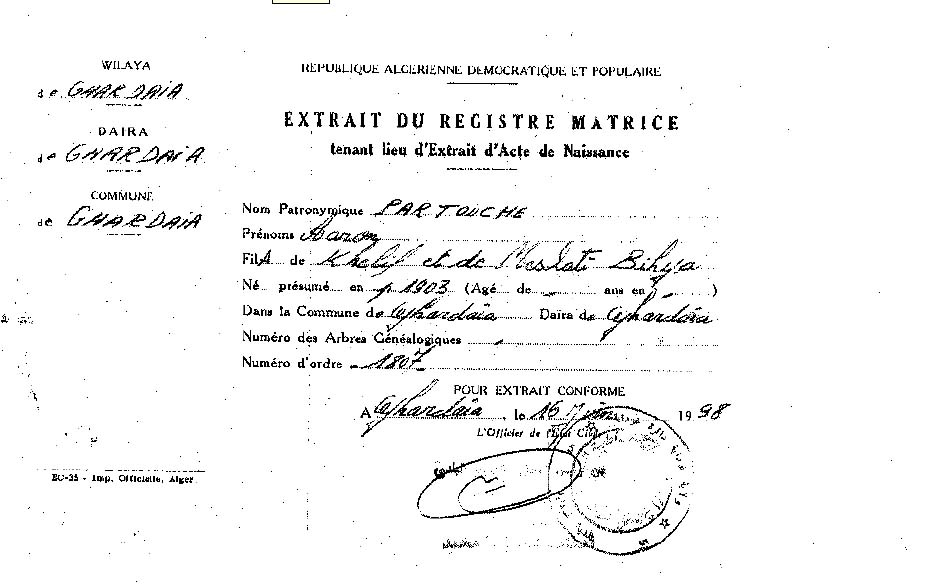 WILAYA
de GHARDAIA
DAIRA
de GHARDAIA
COMMUNE
de GHARDAIA
EC-25 - Imp. Officielle, Alger
REPUBLIQUE ALGERIENNE DEMOCRATIQUE ET POPULAIRE
EXTRAIT DU REGISTRE MATRICE
tenant lieu d'Extrait d'Acte de Naissance
Nom Patronymique PARTOUCHE
Prénoms Aaron
Fils de Khelif et de Meslati Bihya
Né présumé en 1903 (Agé de - ans en - )
Dans la Commune de Ghardaïa Daïra de Ghardaïa
Numéro des Arbres Généalogiques -
Numéro d'ordre - 1807
POUR EXTRAIT CONFORME
A Ghardaïa, le 16 Juin 1998
L'Officier de l'Etat Civil